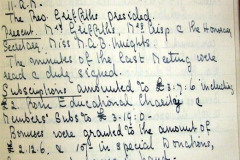 11. A.M.
The Rev. Griffiths presided.
Present. Mrs Griffiths, Mrs Crisp & the Honorary
Secretary Miss M.A.B. Knights.
The minutes of the last Meeting were
read & duly signed.
Subscriptions amounted to £3.7.6 including
£2. from Educational Charity &
Members' Subs to £3.19.0.
Bonuses were granted to the amount of
£2.12.6, & 15/- in special Donations,